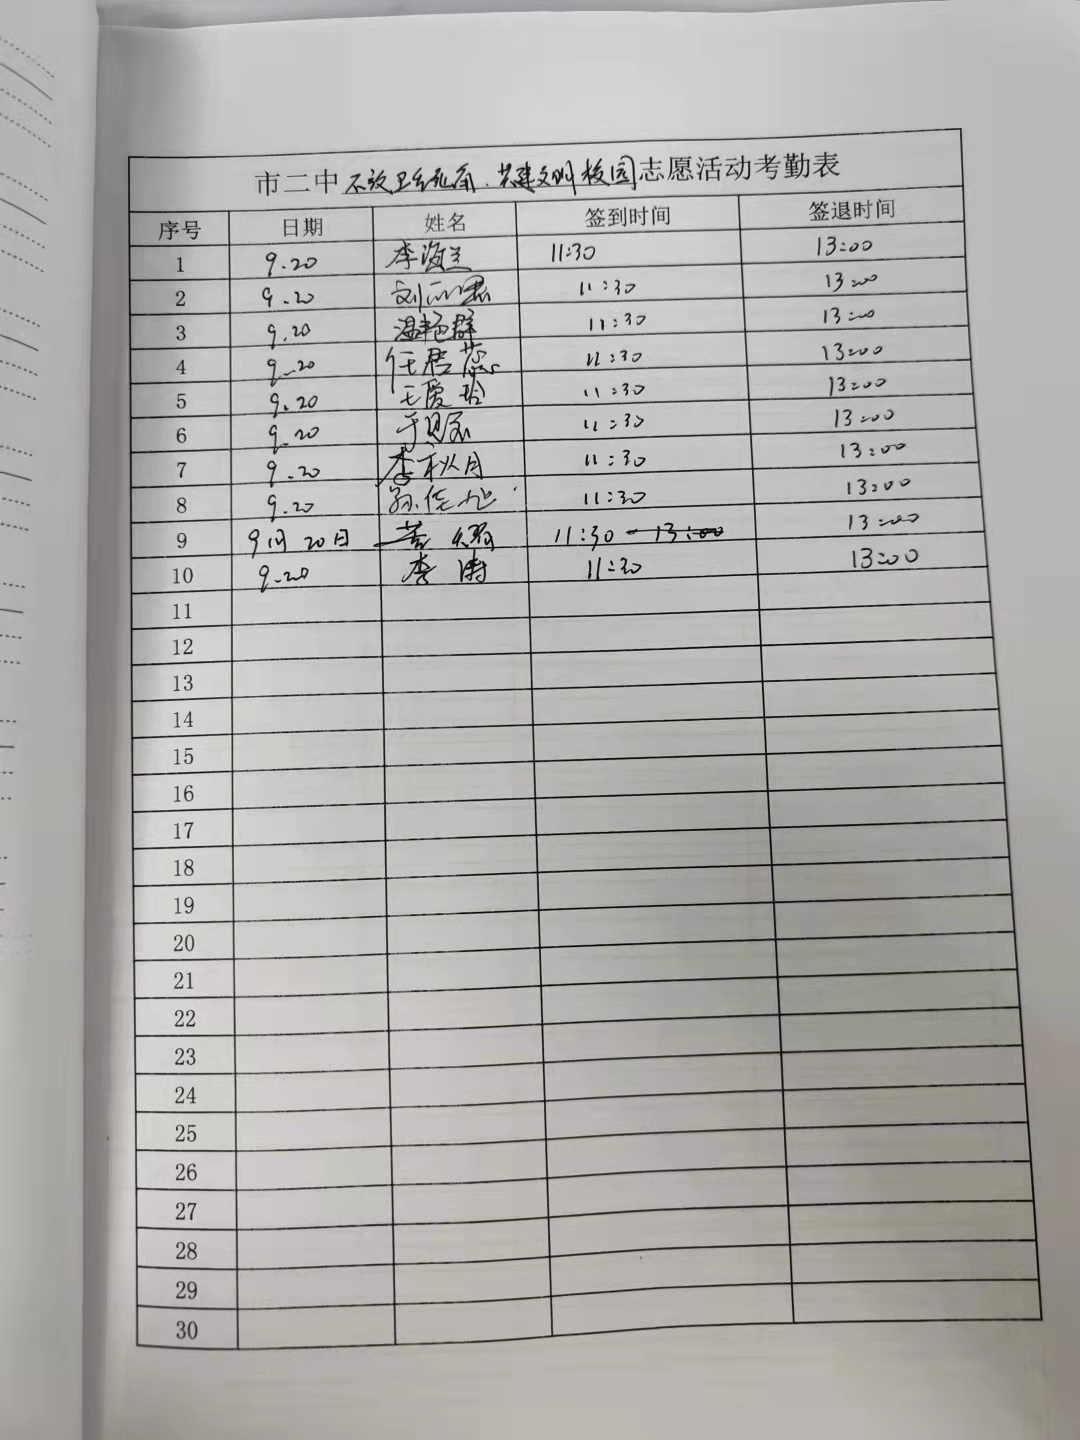 市二中不放卫生死角.共建文明校园志愿活动考勤表
序号 日期 姓名 签到时间 签退时间
1 9.20 李海兰 11:30 13:00
2 9.20 刘丽君 11:30 13:00
3 9.20 温艳群 11:30 13:00
4 9.20 任君蕊 11:30 13:00
5 9.20 王爱玲 11:30 13:00
6 9.20 于 11:30 13:00
7 9.20 李秋月 11:30 13:00
8 9.20 孙佳旭 11:30 13:00
9 9月20日 11:30 13:00
10 9.20 李涛 11:30 13:00
11
12
13
14
15
16
17
18
19
20
21
22
23
24
25
26
27
28
29
30